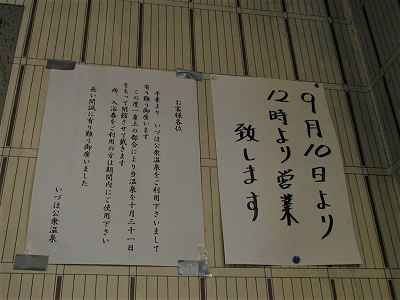 9月10日より
12時より営業
致します
お客様各位
平素より、いづほ公衆温泉をご利用下さいまして
有り難う御座います
この度一身上の都合により当温泉を十月三十一日
をもって閉館させて戴きます
尚、入浴券をご利用の方は期間内にご使用下さい
長い間誠に有り難う御座いました
いづほ公衆温泉